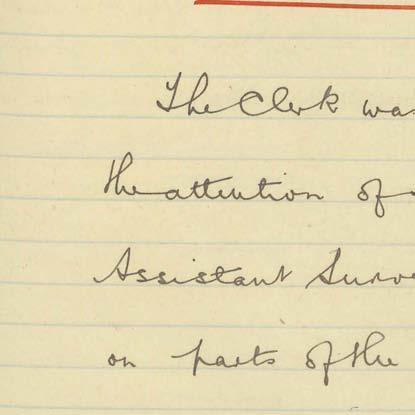 The Clerk was
the attention of
Assistant Surve
on parts of the